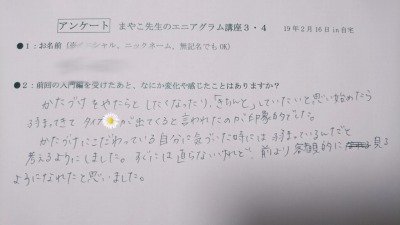 アンケート　まやこ先生のエニアグラム講座3・4　19年2月16日in自宅
●1：お名前（イニシャル、ニックネーム、無記名でもOK）
●2：前回の入門編を受けたあと、なにか変化や感じたことはありますか？
かたづけをやたらとしたくなったり、「きちんと」していたいと思い始めたら
タイプ が出てくると言われたのが印象的でした。
かたづけにこだわっている自分に気づいた時には 張っているんだと
考えるようにしました。すぐには直らないけれど、前より客観的に見る
ようになれたと思いました。